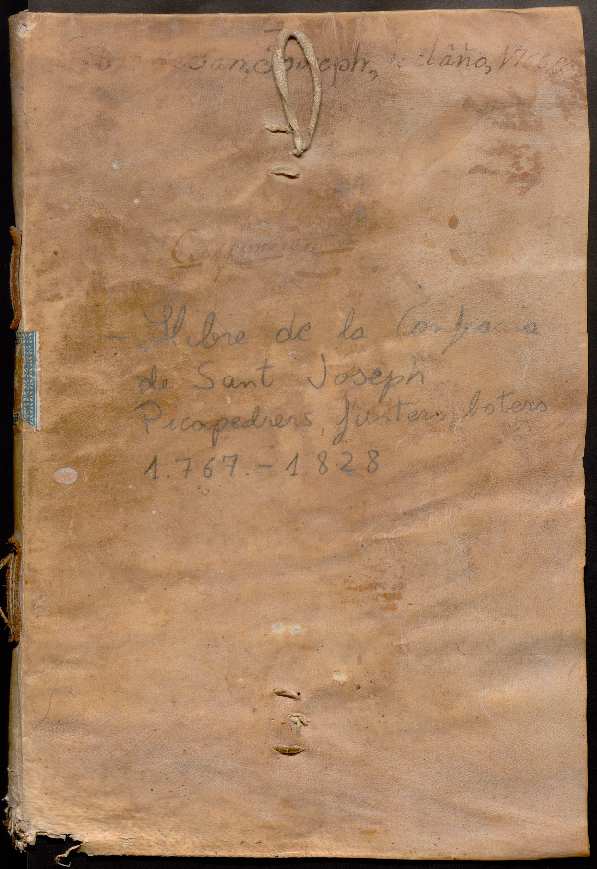 San Joseph, del año,
- Llibre de la Confraria
de Sant Joseph
Picapedrers, fusters, boters
1.767.-1828